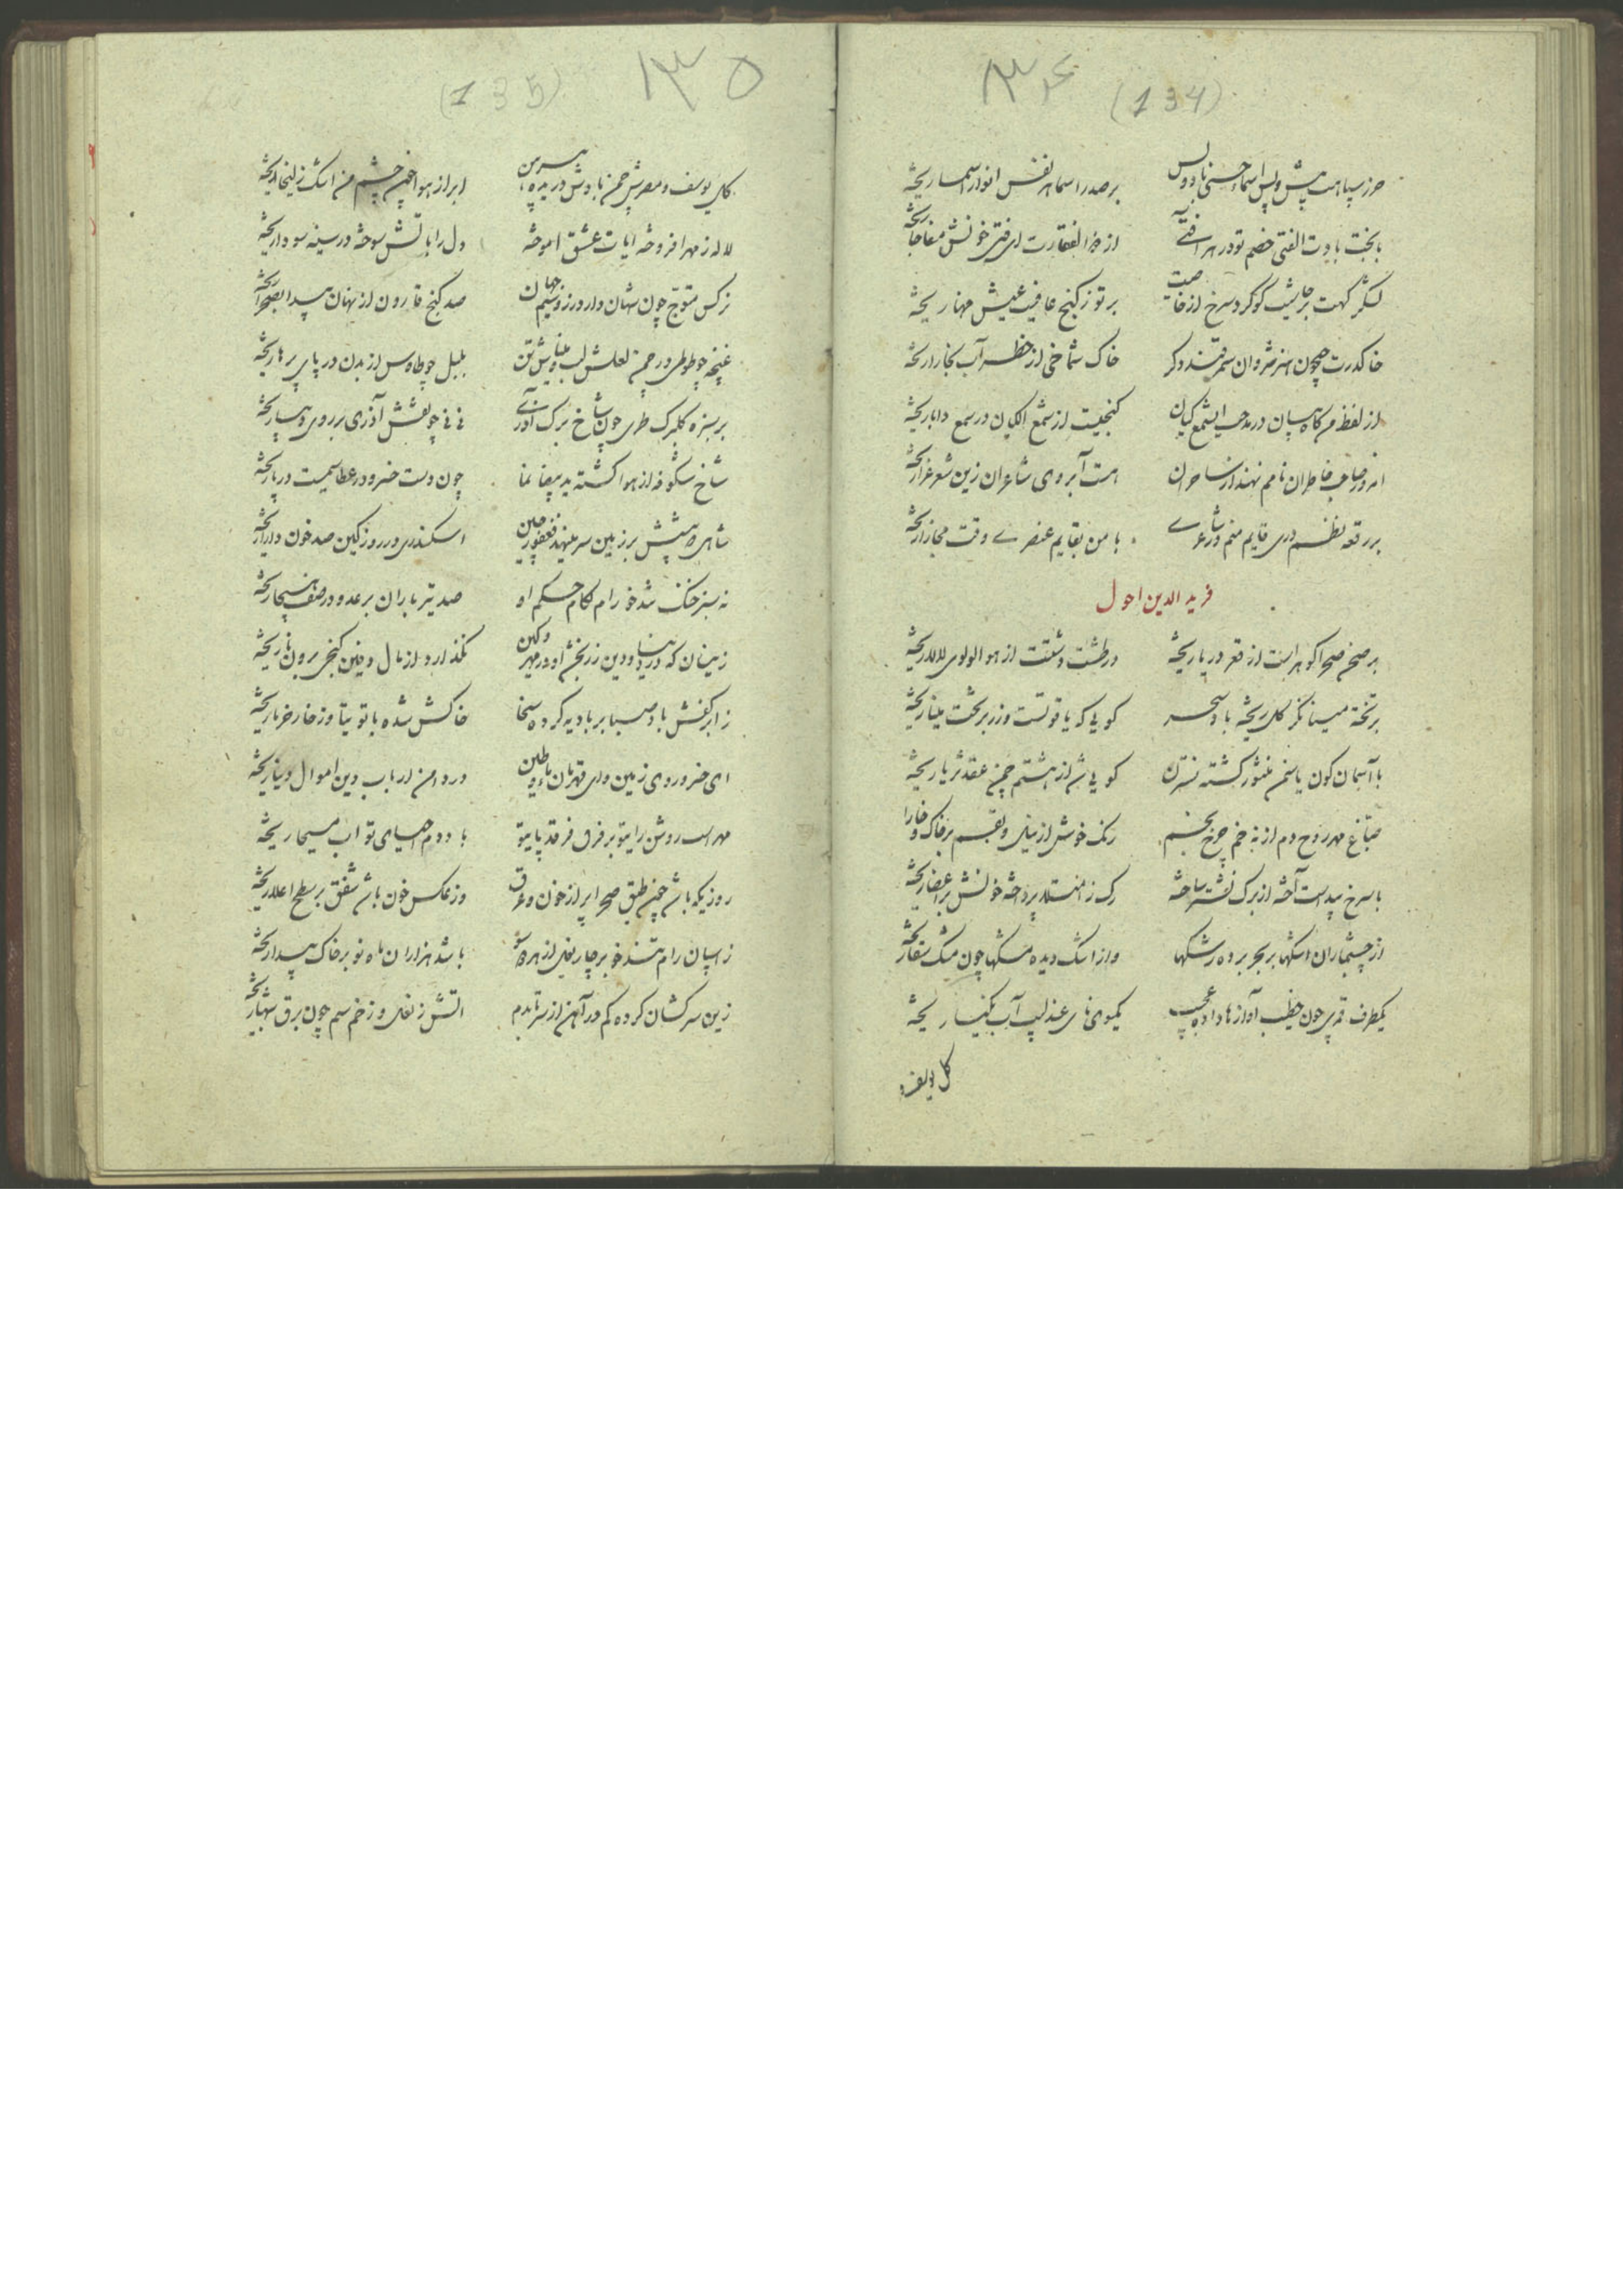 ۱۳۴ (134)
حرز سپاهت پیش و پس اسماء حسنی باد و بس بر صدر اسما هر نفس انوار اسما ریخته
با بخت بادت الفتی خصم تو در هر آفتی از ذو الفقارت ای فتی خونش مفاجا ریخته
لشکر گهت بر حاشیت گوگرد سرخ از خاصیت بر تو ز گنج عافیت عیش مهنا ریخته
خاک درت همچون هنر شروان سمرقند دگر خاک شماخی از خطر آب بخارا ریخته
از لفظ من گاه بیان در مدحت ای شمع کیان گنجیست از سمع الکیان در سمع دانا ریخته
امروز صاحب خاطران نامم نهند از ساحران هست آبروی شاعران زین شعر غرا ریخته
بر رقعه نظم دری قایم منم در شاعری با من بقایم عنصری وقت مجارا ریخته
فرید الدین احول
بر صحن صحرا گوهر است از قعر دریا ریخته در طشت دشتت از هوا لولوی لالا ریخته
بر تخته مینا نگر گل ریخته باد سحر گویی که یاقوتست و زر بر تخت مینا ریخته
با آسمان گون یاسمن منثور گشته نسترن گویی شد از هشتم چمن عقد ثریا ریخته
صباغ مهر روح دم از نه خم چرخ بخم رنگ خوش از نیل و بقم بر خاک و خارا ریخته
با سرخ بید است آخته از برگ نشتر ساخته رگ ز امتلا پرداخته خونش بر اعضا ریخته
از چشم باران اشکها بر بحر برده رشکها و از اشک دیده مشکها چون مشک سقا ریخته
یکطرف قمری چون خطیب آوازها داده عجیب یکسوی نای عندلیب آب نکیسا ریخته
گل یوسف و
۱۳۵ (135)
گل یوسف و مصرش چمن بادش دریده پیرهن ابر از هوا چون چشم من اشک زلیخا ریخته
لاله ز مهر افروخته آیات عشق آموخته دل را بآتش سوخته در سینه سودا ریخته
نرگس متوج چون شهان دارد زر و سیم جهان صد گنج قارون از نهان پیدا بصحرا ریخته
غنچه چو طوطی در چمن لعلش لب و میناش تن بلبل چو طاوس از بدن در پای پرها ریخته
بر سبزه گلبرگ طری چون شاخ برگ آذری نی نی چو نقش آذری بر روی دیبا ریخته
شاخ شکوفه از هوا گشته ید بیضا نما چون دست خسرو در عطا سیمست در پا ریخته
شاهی که پیشش بر زمین سر مینهد فغفور چین اسکندری در روز کین صد خون دارا ریخته
نه سبز خنگ تندخو رام لگام حکم او صد تیر باران بر عدو در صف هیجا ریخته
زینسان که در دنیا و دین زر بخشد او در مهر و کین نگذارد از مال دفین گنجی برون نا ریخته
ز ابر کفش باد صبا بر بادیه کرده سخا خاکش شده با توتیا وز خار خرما ریخته
ای خسرو روی زمین وای قهرمان ماء و طین در دامن ارباب دین اموال دنیا ریخته
مهر است روشن رای تو بر فرق فرقد پای تو باد دم احیای تو آب مسیحا ریخته
روزیکه باشد چون طبق صحرا پر از خون و عرق وز عکس خون باشد شفق بر سطح اعلا ریخته
ز اسپان رام تندخو بر چار نعل از هر دو سو باشد هزاران ماه نو بر خاک پیدا ریخته
زین سرکشان کرده گم در آهن از سر تا بدم آتش ز نعل و زخم سم چون برق شبها ریخته